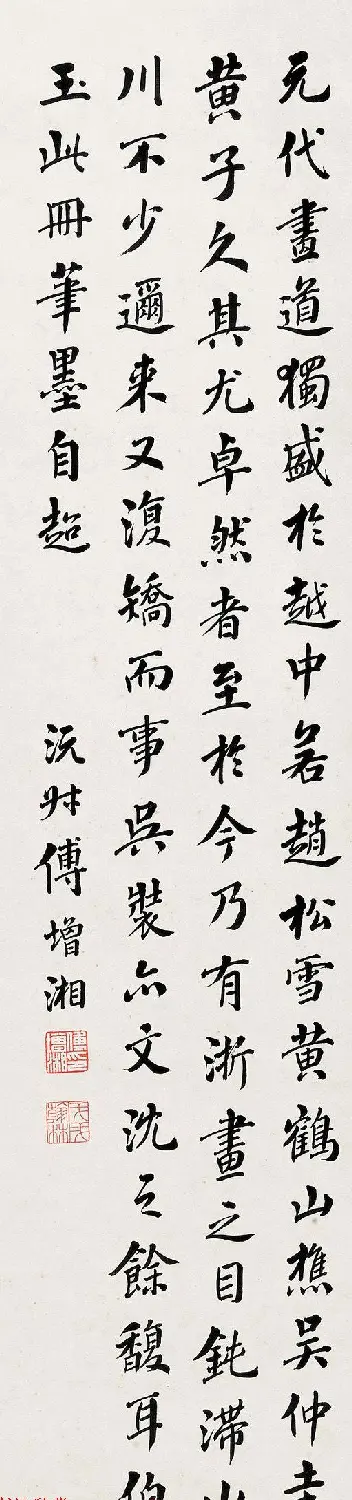 元代畫道獨盛於越中若趙松雪黃鶴山樵吳仲圭
黃子久其尤卓然者至於今乃有浙畫之目鈍滯山
川不少邇来又復矯而事吳裝亦文沈之餘馥耳伯
玉此冊筆墨自超
沅叔傅增湘